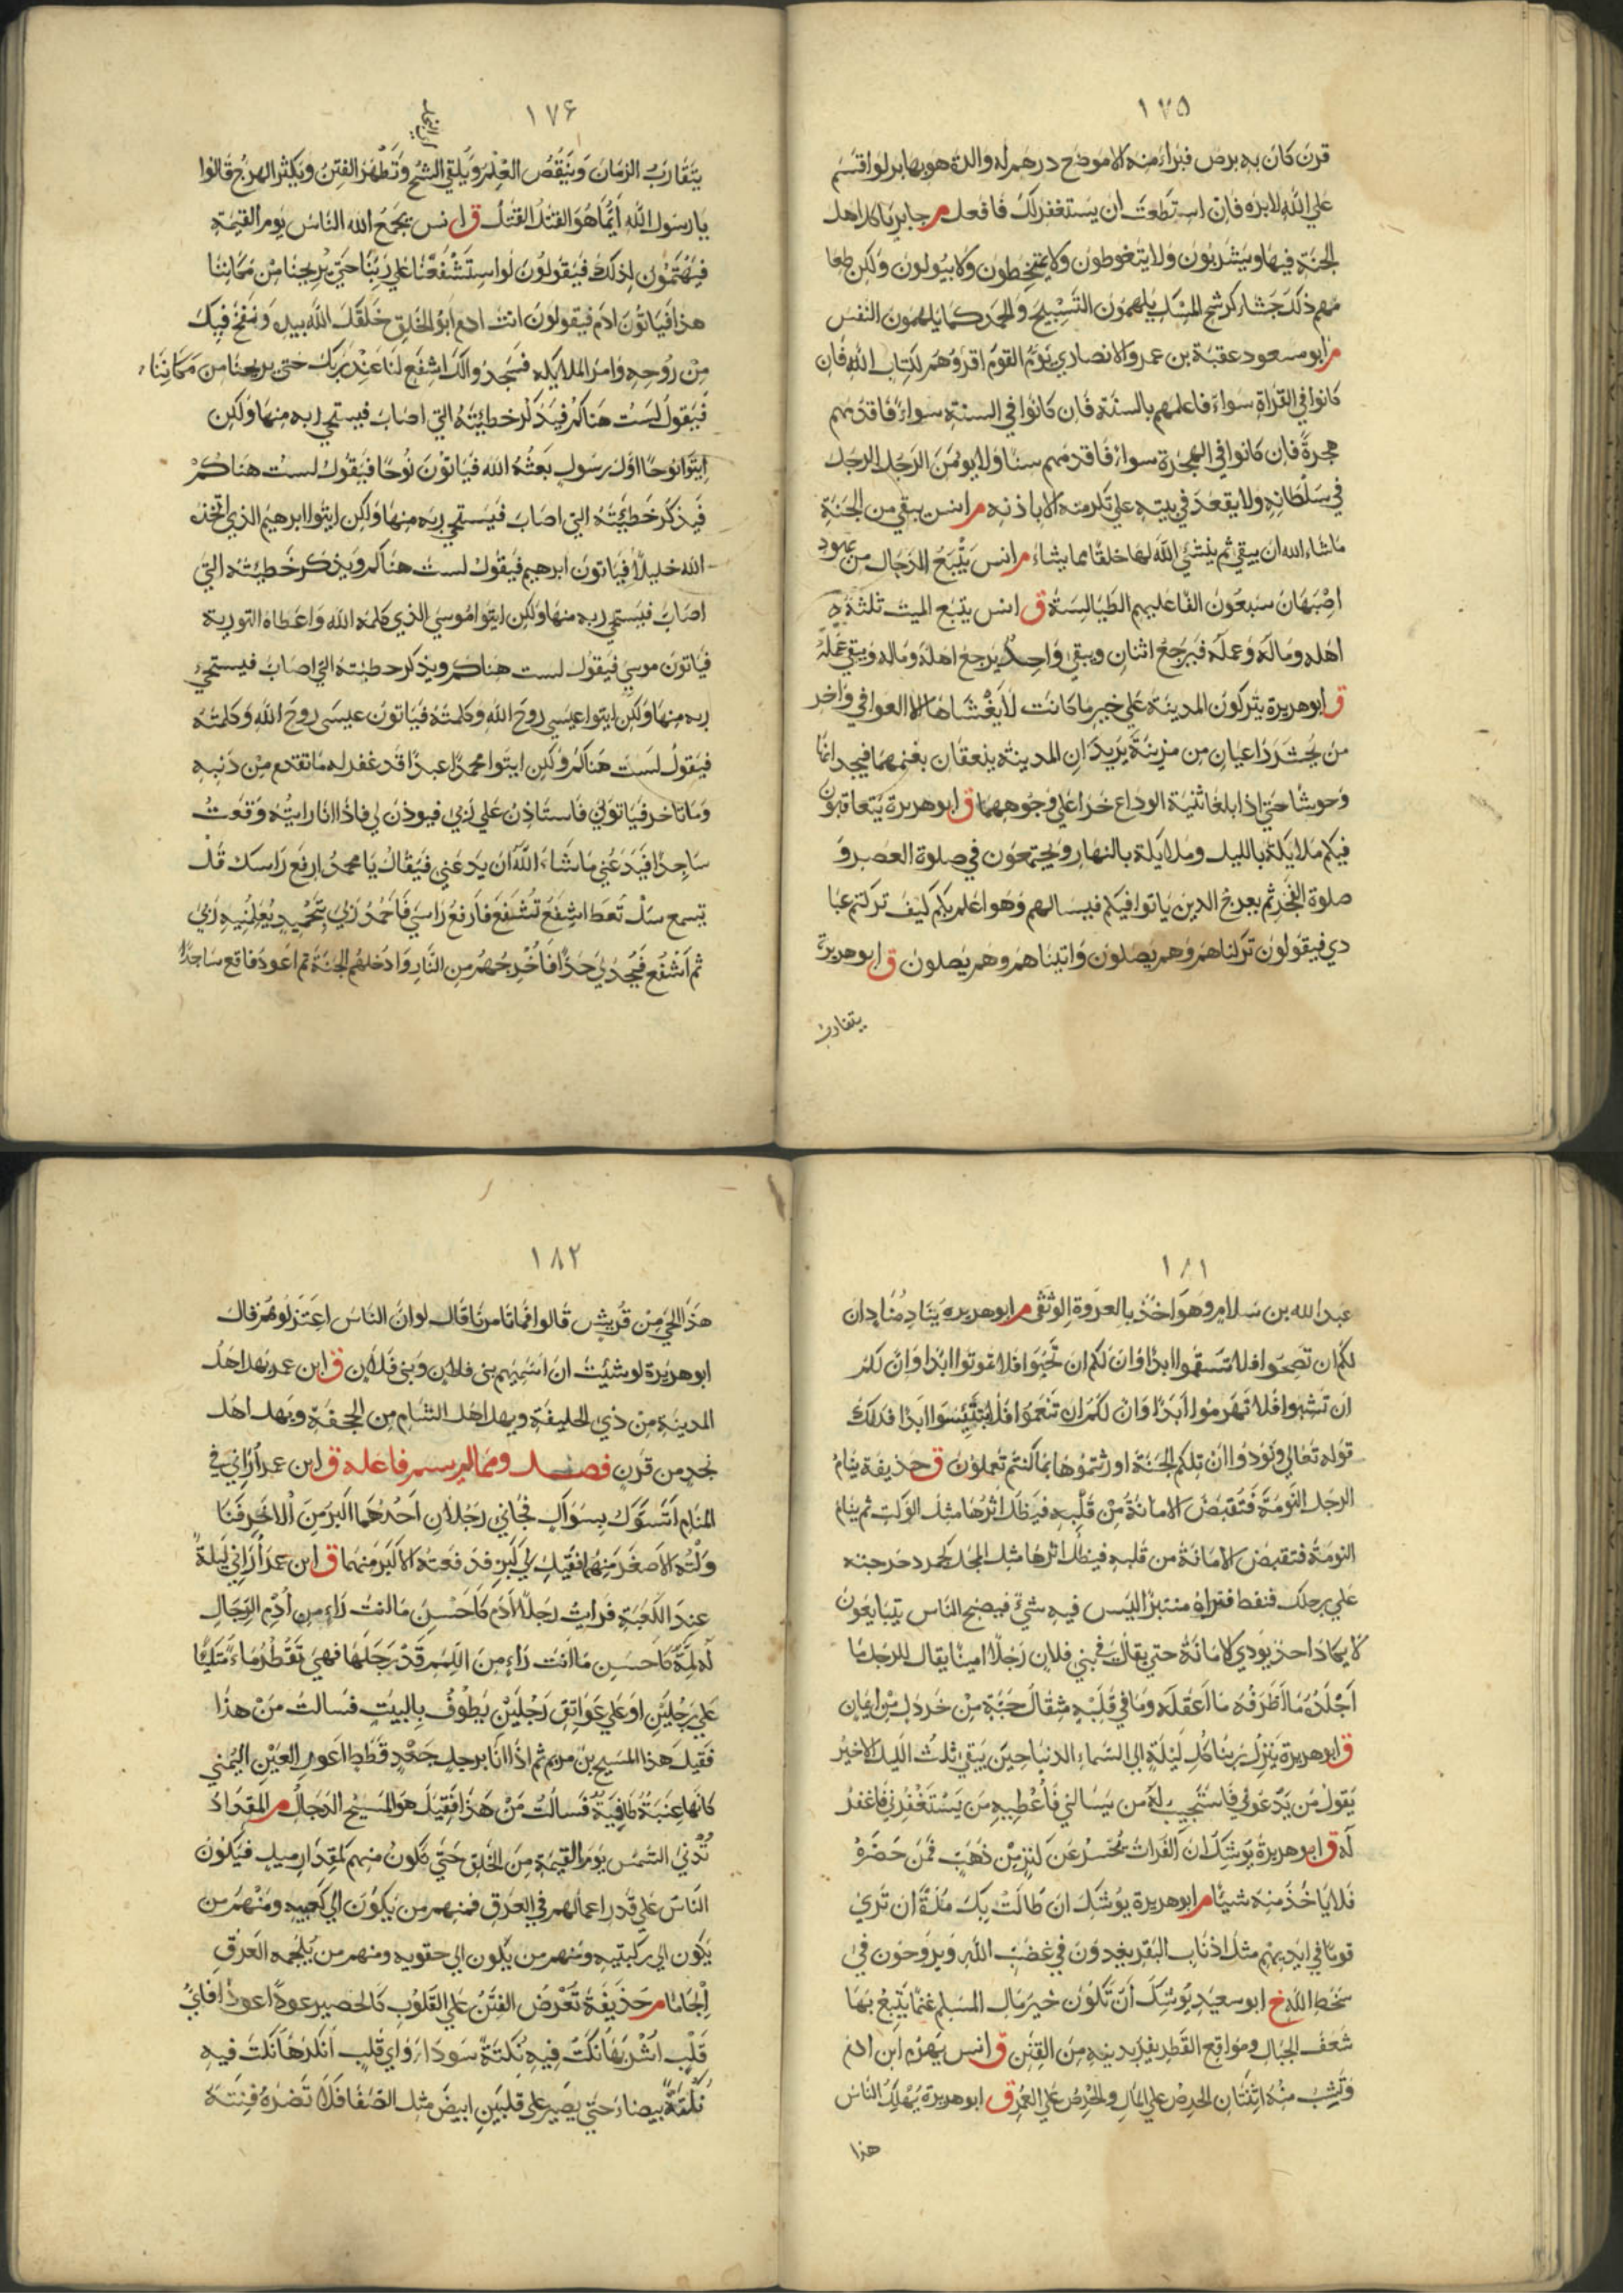 ١٧٥
قرن كان به برص فبراء منه الا موضع درهم له والدة هو بها بر لو اقسم
على الله لابره فان استطعت ان يستغفر لك فافعل م جابر ياكل اهل
الجنة فيها ويشربون ولا يتغوطون ولا يتمخطون ولا يبولون ولكن طعا
مهم ذلك جشاء كرشح المسك يلهمون التسبيح والحمد كما يلهمون النفس
م ابو مسعود عقبة بن عمرو الانصاري يؤم القوم اقرؤهم لكتاب الله فان
كانوا في القراة سواء فاعلمهم بالسنة فان كانوا في السنة سواء فاقدمهم
هجرة فان كانوا في الهجرة سواء فاقدمهم سنا ولا يؤمن الرجل الرجل
في سلطانه ولا يقعد في بيته على تكرمته الا باذنه م انس يبقى من الجنة
ماشاء الله ان يبقى ثم ينشئ الله لها خلقا مما يشاء م انس يتبع الدجال من يهود
اصبهان سبعون الفا عليهم الطيالسة ق انس يتبع الميت ثلثة
اهله وماله وعمله فيرجع اثنان ويبقى واحد يرجع اهله وماله ويبقى عمله
ق ابو هريرة يتركون المدينة على خير ما كانت لا يغشاها الا العوافي واخر
من يحشر راعيان من مزينة يريدان المدينة ينعقان بغنمهما فيجدانها
وحوشا حتى اذا بلغا ثنية الوداع خرا على وجوههما ق ابو هريرة يتعاقبون
فيكم ملائكة بالليل وملائكة بالنهار ويجتمعون في صلوة العصر و
صلوة الفجر ثم يعرج الذين ياتوا فيكم فيسالهم وهو اعلم بكم كيف تركتم عبا
دي فيقولون تركناهم وهم يصلون واتيناهم وهم يصلون ق ابو هريرة
يتقارب
١٧۶
يتقارب الزمان وينقص العلم ويلقى الشح وتظهر الفتن ويكثر الهرج قالوا
يا رسول الله ايما هو القتل القتل ق انس يجمع الله الناس يوم القيمة
فيهتمون لذلك فيقولون لو استشفعنا على ربنا حتى يريحنا من مكاننا
هذا فياتون ادم فيقولون انت ادم ابو الخلق خلقك الله بيده ونفخ فيك
من روحه وامر الملايكه فسجدوا لك اشفع لنا عند ربك حتى يريحنا من مكاننا
فيقول لست هناكم فيذكر خطيئته التي اصاب فيستحي ربه منها ولكن
ايتوا نوحا اول رسول بعثه الله فياتون نوحا فيقول لست هناكم
فيذكر خطيئته التي اصاب فيستحي ربه منها ولكن ايتوا ابرهيم الذي اتخذه
الله خليلا فياتون ابرهيم فيقول لست هناكم ويذكر خطيئته التي
اصاب فيستحي ربه منها ولكن ايتوا موسى الذي كلمه الله واعطاه التورية
فياتون موسى فيقول لست هناكم ويذكر خطيئته التي اصاب فيستحي
ربه منها ولكن ايتوا عيسى روح الله وكلمته فياتون عيسى روح الله وكلمته
فيقول لست هناكم ولكن ايتوا محمدا عبدا قد غفر له ما تقدم من ذنبه
وما تاخر فياتوني فاستاذن على ربي فيوذن لي فاذا انا رايته وقعت
ساجدا فيدعني ماشاء الله ان يدعني فيقال يا محمد ارفع راسك قل
تسمع سل تعط اشفع تشفع فارفع راسي فاحمد ربي بتحميد يعلمنيه ربي
ثم اشفع فيحد لي حدا فاخرجهم من النار وادخلهم الجنة ثم اعود فاقع ساجدا
١٨١
عبد الله بن سلام وهو اخذ بالعروة الوثقى م ابو هريرة ينادي مناد ان
لكم ان تصحوا فلا تسقموا ابدا وان لكم ان تحيوا فلا تموتوا ابدا وان لكم
ان تشبوا فلا تهرموا ابدا وان لكم ان تنعموا فلا تبتئسوا ابدا فذلك
قوله تعالى ونودوا ان تلكم الجنة اورثتموها بما كنتم تعملون ق حذيفة ينام
الرجل النومة فتقبض الامانة من قلبه فيظل اثرها مثل الوكت ثم ينام
النومة فتقبض الامانة من قلبه فيظل اثرها مثل المجل كجمر دحرجته
على رجلك فنفط فتراه منتبرا ليس فيه شئ فيصبح الناس يتبايعون
لا يكاد احد يؤدي الامانة حتى يقال في بني فلان رجلا امينا يقال للرجل ما
اجلده ما اظرفه ما اعقله وما في قلبه مثقال حبة من خردل من ايمان
ق ابو هريرة ينزل ربنا كل ليلة الى السماء الدنيا حين يبقى ثلث الليل الاخير
يقول من يدعوني فاستجيب له من يسالني فاعطيه من يستغفرني فاغفر
له ق ابو هريرة يوشك ان الفرات تحسر عن كنز من ذهب فمن حضره
فلا ياخذ منه شيئا م ابو هريرة يوشك ان طالت بك مدة ان ترى
قوما في ايديهم مثل اذناب البقر يغدون في غضب الله ويروحون في
سخط الله خ ابو سعيد يوشك ان تكون خير مال المسلم غنما يتبع بها
شعف الجبال ومواقع القطر يفر بدينه من الفتن ق انس يهرم ابن ادم
وتشب منه اثنتان الحرص على المال والحرص على العمر ق ابو هريرة يهلك الناس
هذا
١٨٢
هذا الحي من قريش قالوا فما تامرنا قال لو ان الناس اعتزلوهم قال
ابو هريرة لو شئت ان اسميهم بني فلان وبني فلان ق ابن عمر يهل اهل
المدينة من ذي الحليفة ويهل اهل الشام من الجحفة ويهل اهل
نجد من قرن فصل ومما لم يسم فاعله ق ابن عمر اراني في
المنام اتسوك بسواك فجاني رجلان احدهما اكبر من الاخر فنا
ولته الاصغر منهما فقيل لي كبر فدفعته الى الاكبر منهما ق ابن عمر اراني ليلة
عند الكعبة فرايت رجلا ادم كاحسن ما انت راء من ادم الرجال
له لمة كاحسن ما انت راء من اللمم قد رجلها فهي تقطر ماء متكئا
على رجلين او على عواتق رجلين يطوف بالبيت فسالت من هذا
فقيل هذا المسيح بن مريم ثم اذا انا برجل جعد قطط اعور العين اليمنى
كانها عنبة طافية فسالت من هذا فقيل هو المسيح الدجال م المقداد
تدني الشمس يوم القيمة من الخلق حتى تكون منهم كمقدار ميل فيكون
الناس على قدر اعمالهم في العرق فمنهم من يكون الى كعبيه ومنهم من
يكون الى ركبتيه ومنهم من يكون الى حقويه ومنهم من يلجمه العرق
الجاما م حذيفة تعرض الفتن على القلوب كالحصير عودا عودا فاي
قلب اشربها نكت فيه نكتة سوداء واي قلب انكرها نكت فيه
نكتة بيضاء حتى يصير على قلبين ابيض مثل الصفا فلا تضره فتنة